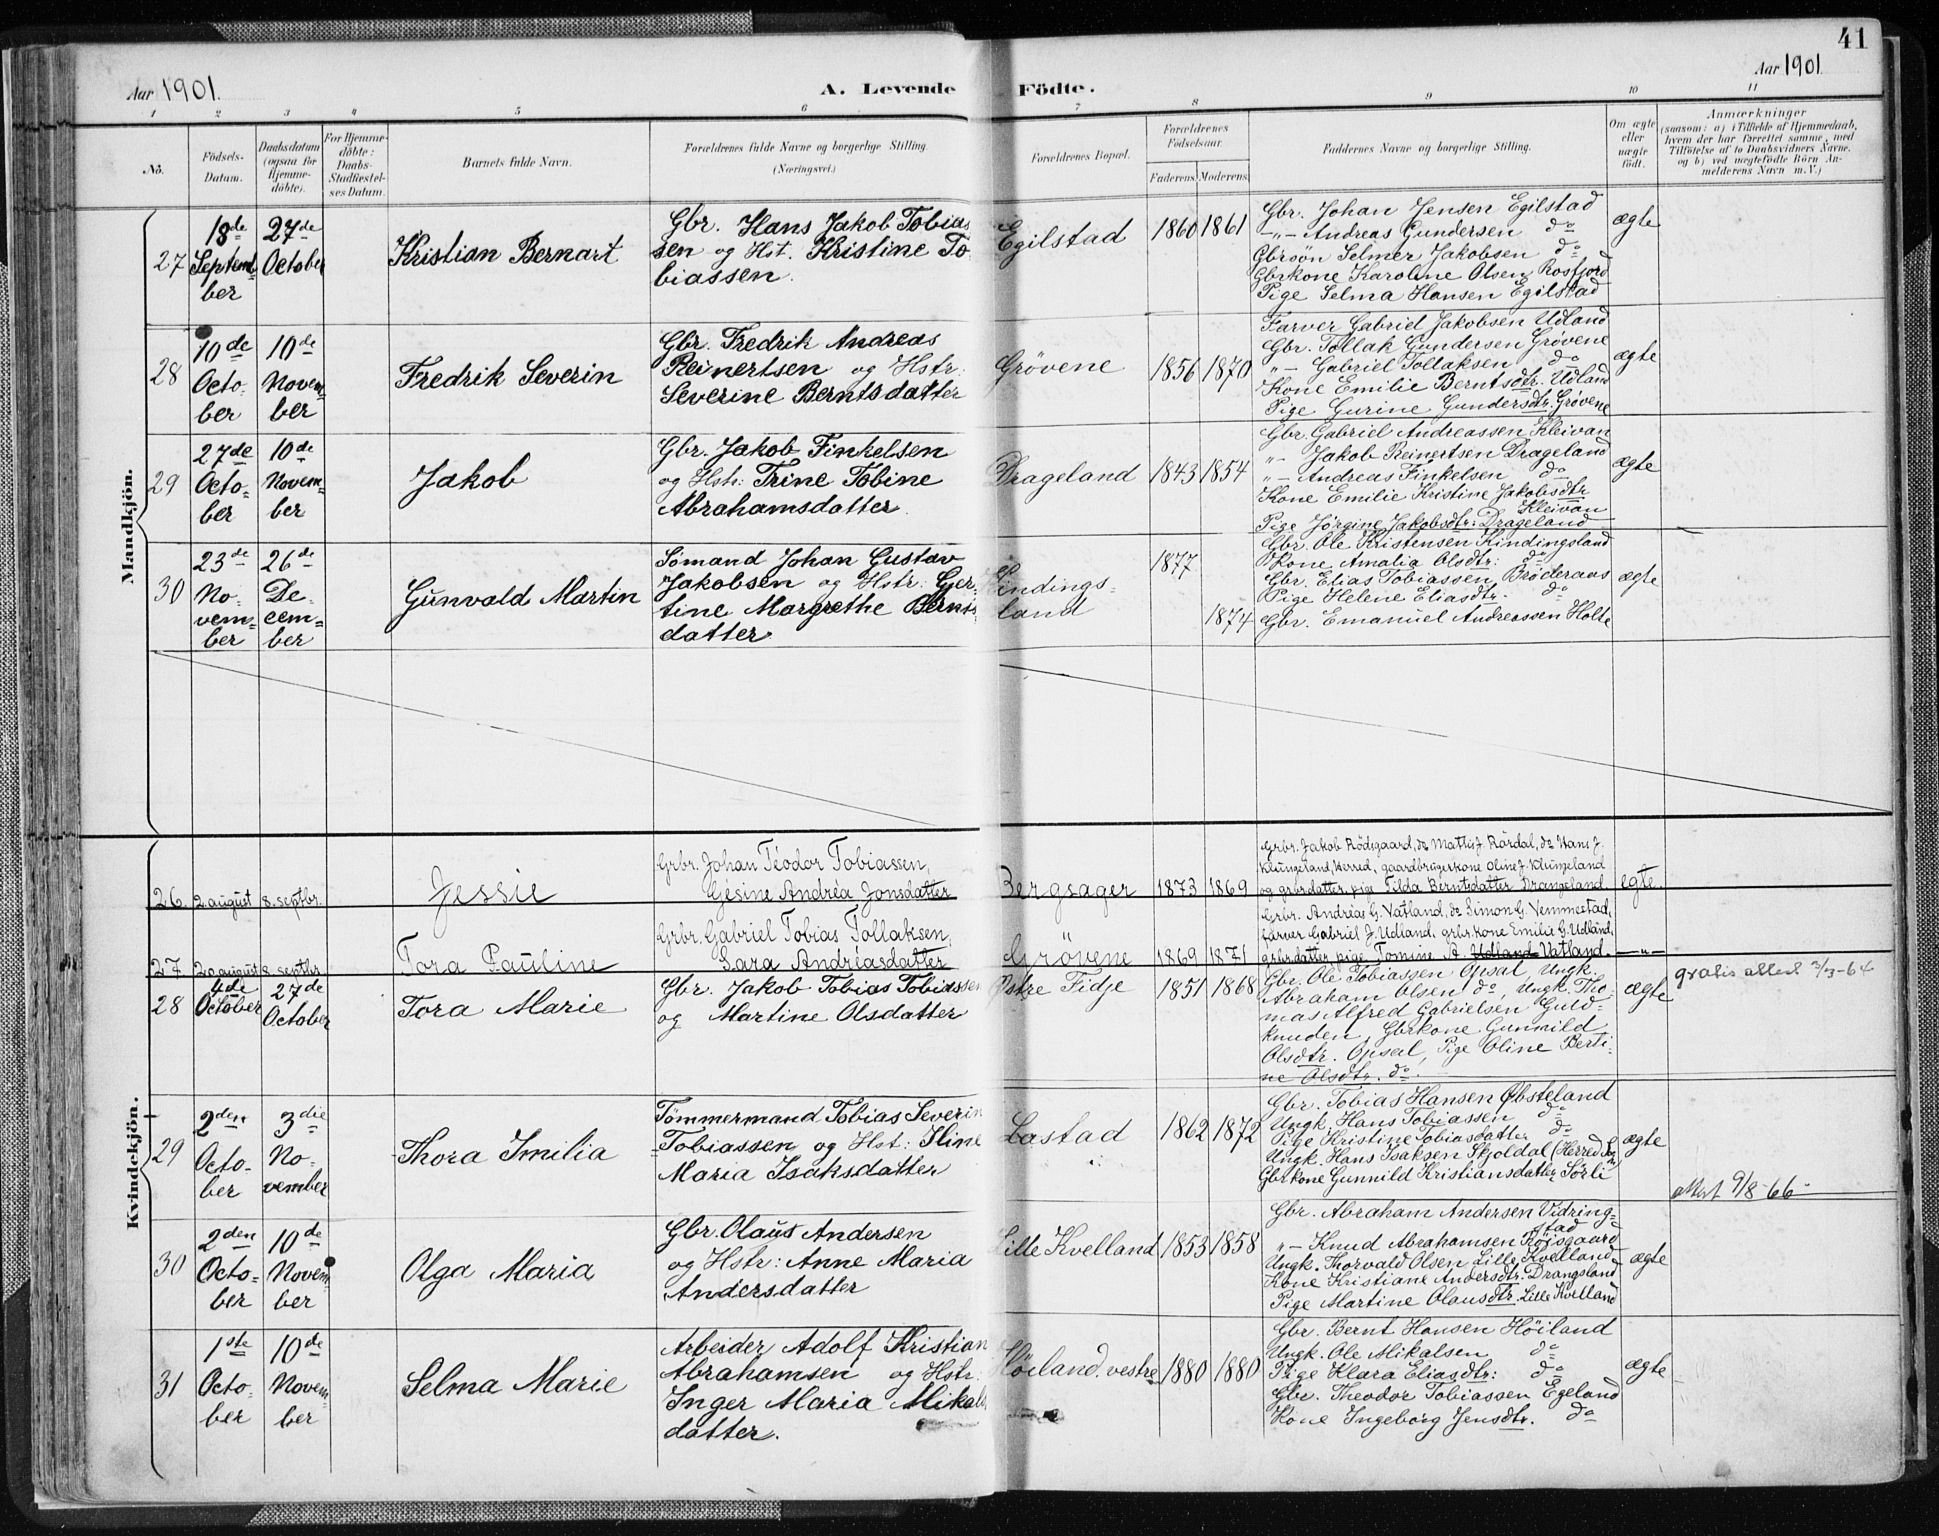 41
Aar 1901.
A. Levende
Födte.
Aar 1901
1
2
3
4
5
6
7
8
9
10
11
No.
Födsels-
Datum.
Daabsdatum
(ogsaa for
Hjemme-
döbte).
For Hjemme-
döbte:
Daabs-
Stadfæstel-
ses Datum.
Barnets fulde Navn.
Forældrenes fulde Navne og borgerlige Stilling.
(Næringsvei.)
Forældrenes Bopæl.
Forældrenes
Födselsaar.
Faderens.
Moderens.
Faddernes Navne og borgerlige Stilling.
Om ægte
eller
uægte
födt.
Anmærkninger
(saasom: a) i Tilfælde af Hjemmedaab,
hvem der har forrettet samme, med
Tilföielse af to Daabsvidners Navne.
og b) ved uægtefödte Börn An-
melderens Navn m.V.)
Mandkjön.
27
18de
Septem-
ber
27de
October
Kristian Bernart
Gbr. Hans Jakob Tobias
sen og Hst. Kristine To
biassen.
Egilstad
1860
1861
Gbr. Johan Jensen Egilstad
-"- Andreas Gundersen do
Gbrsön Selmer Jakobsen do
Gbrkone Karoline Olsen Rosfjord
Pige Selma Hansen Egilstad
ægte
28
10de
Octo-
ber
10de
Novem-
ber
Fredrik Severin
Gbr. Fredrik Andreas
Reinertsen og Hstr:
Severine Berntsdatter
Grövene
1856
1870
Farver Gabriel Jakobsen Udland
Gbr. Tollak Gundersen Grövene
"- Gabriel Tollaksen do
Kone Emilie Berntsdtr. Udland
Pige Gurine Gundersdtr. Grövene
ægte
29
27de
Octo-
ber
10de
Novem-
ber
Jakob
Gbr. Jakob Finkelsen
og Hstr: Trine Tobine
Abrahamsdatter.
Drageland
1843
1854
Gbr. Gabriel Andreassen Kleivan
"- Jakob Reinertsen Drageland
"- Andreas Finkelsen do
Kone Emilie Kristine Jakobsdtr
Kleivan
Pige Jörgine Jakobsdtr: Drageland
ægte
30
23de
No-
vem-
ber
26de
De-
cem-
ber
Gunvald Martin
Sömand Johan Gustav
Jakobsen og Hstr: Gjer-
tine Margrethe Bernts-
datter
Kindings-
land
1877
1874
Gbr. Ole Kristensen Kindingsland
Kone Amalia Olsdtr: do
Gbr. Elias Tobiassen Bröderaas
Pige Helene Eliasdtr. do
Gbr. Emanuel Andreassen Holte
ægte
Kvindekjön.
26.
2 august
8. septbr.
Jessie
Grbr. Johan Teodor Tobiassen,
Gesine Andréa Jonsdatter
Bergsager
1873
1869
Grbr. Jakob Rödsgaard, do Mattis J. Rördal, do Hans J.
Klungeland, Herred, gaardbrugerkone Oline J. Klungeland
og grbrdatter, pige Tilda Berntsdatter Drangeland
egte.
27
20 august
8 septbr.
Tora Pauline
Grbr. Gabriel Tobias Tollaksen,
Sara Andréasdatter
Grövene
1869
1871
Grbr. Andréas G. Vatland, do Simon G. Vemmestad,
farver Gabriel J. Udland, grbr.kone Emilie G. Udland,
grbrdatter, pige Tomine A. Udland Vatland.
-"-
28
4de
October
27de
October
Tora Marie
Gbr. Jakob Tobias Tobiassen
og Martine Olsdatter
Östre Fidje
1851
1868
Gbr. Ole Tobiassen Opsal, Ungk.
Abraham Olsen do, Ungk. Tho-
mas Alfred Gabrielsen Guld-
knuden, Gbrkone Gunnild
Olsdtr. Opsal, Pige Oline Berti-
ne Olsdtr. do.
ægte
gratis attest 2/3-64
29
2den
Octo-
ber
3die
No-
vember
Thora Imilia
Tömmermand Tobias Severin
Tobiassen og Hst: Iline
Maria Isaksdatter
Lastad
1862
1872
Gbr. Tobias Hansen Öbsteland
Ungk. Hans Tobiassen do
Pige Kristine Tobiasdatter do
Ungk. Hans Isaksen Skjoldal (Herred S.)
Gbrkone Gunnild Kristiansdatter Sörli
ægte
attest 9/8-66-
30
2den
Octo-
ber
10de
Novem-
ber
Olga Maria
Gbr. Olaus Andersen
og Hstr: Anne Maria
Andersdatter
Lille Kvelland
1853
1858
Gbr. Abraham Andersen Vidring-
stad
"- Knud Abrahamsen Röisgaard
Ungk. Thorvald Olsen Lille Kvelland
Kone Kristiane Andersdtr. Drangsland
Pige Martine Olausdtr. Lille Kvelland
ægte
31
1ste
Octo-
ber
10de
Novem-
ber
Selma Marie
Arbeider Adolf Kristian
Abrahamsen og Hstr:
Inger Maria Mikals-
datter.
Höiland, vestre
1880
1880
Gbr. Bernt Hansen Höiland
Ungk. Ole Mikalsen do
Pige Klara Eliasdtr: do
Gbr. Theodor Tobiassen Egeland
Kone Ingeborg Jensdtr. do
ægte